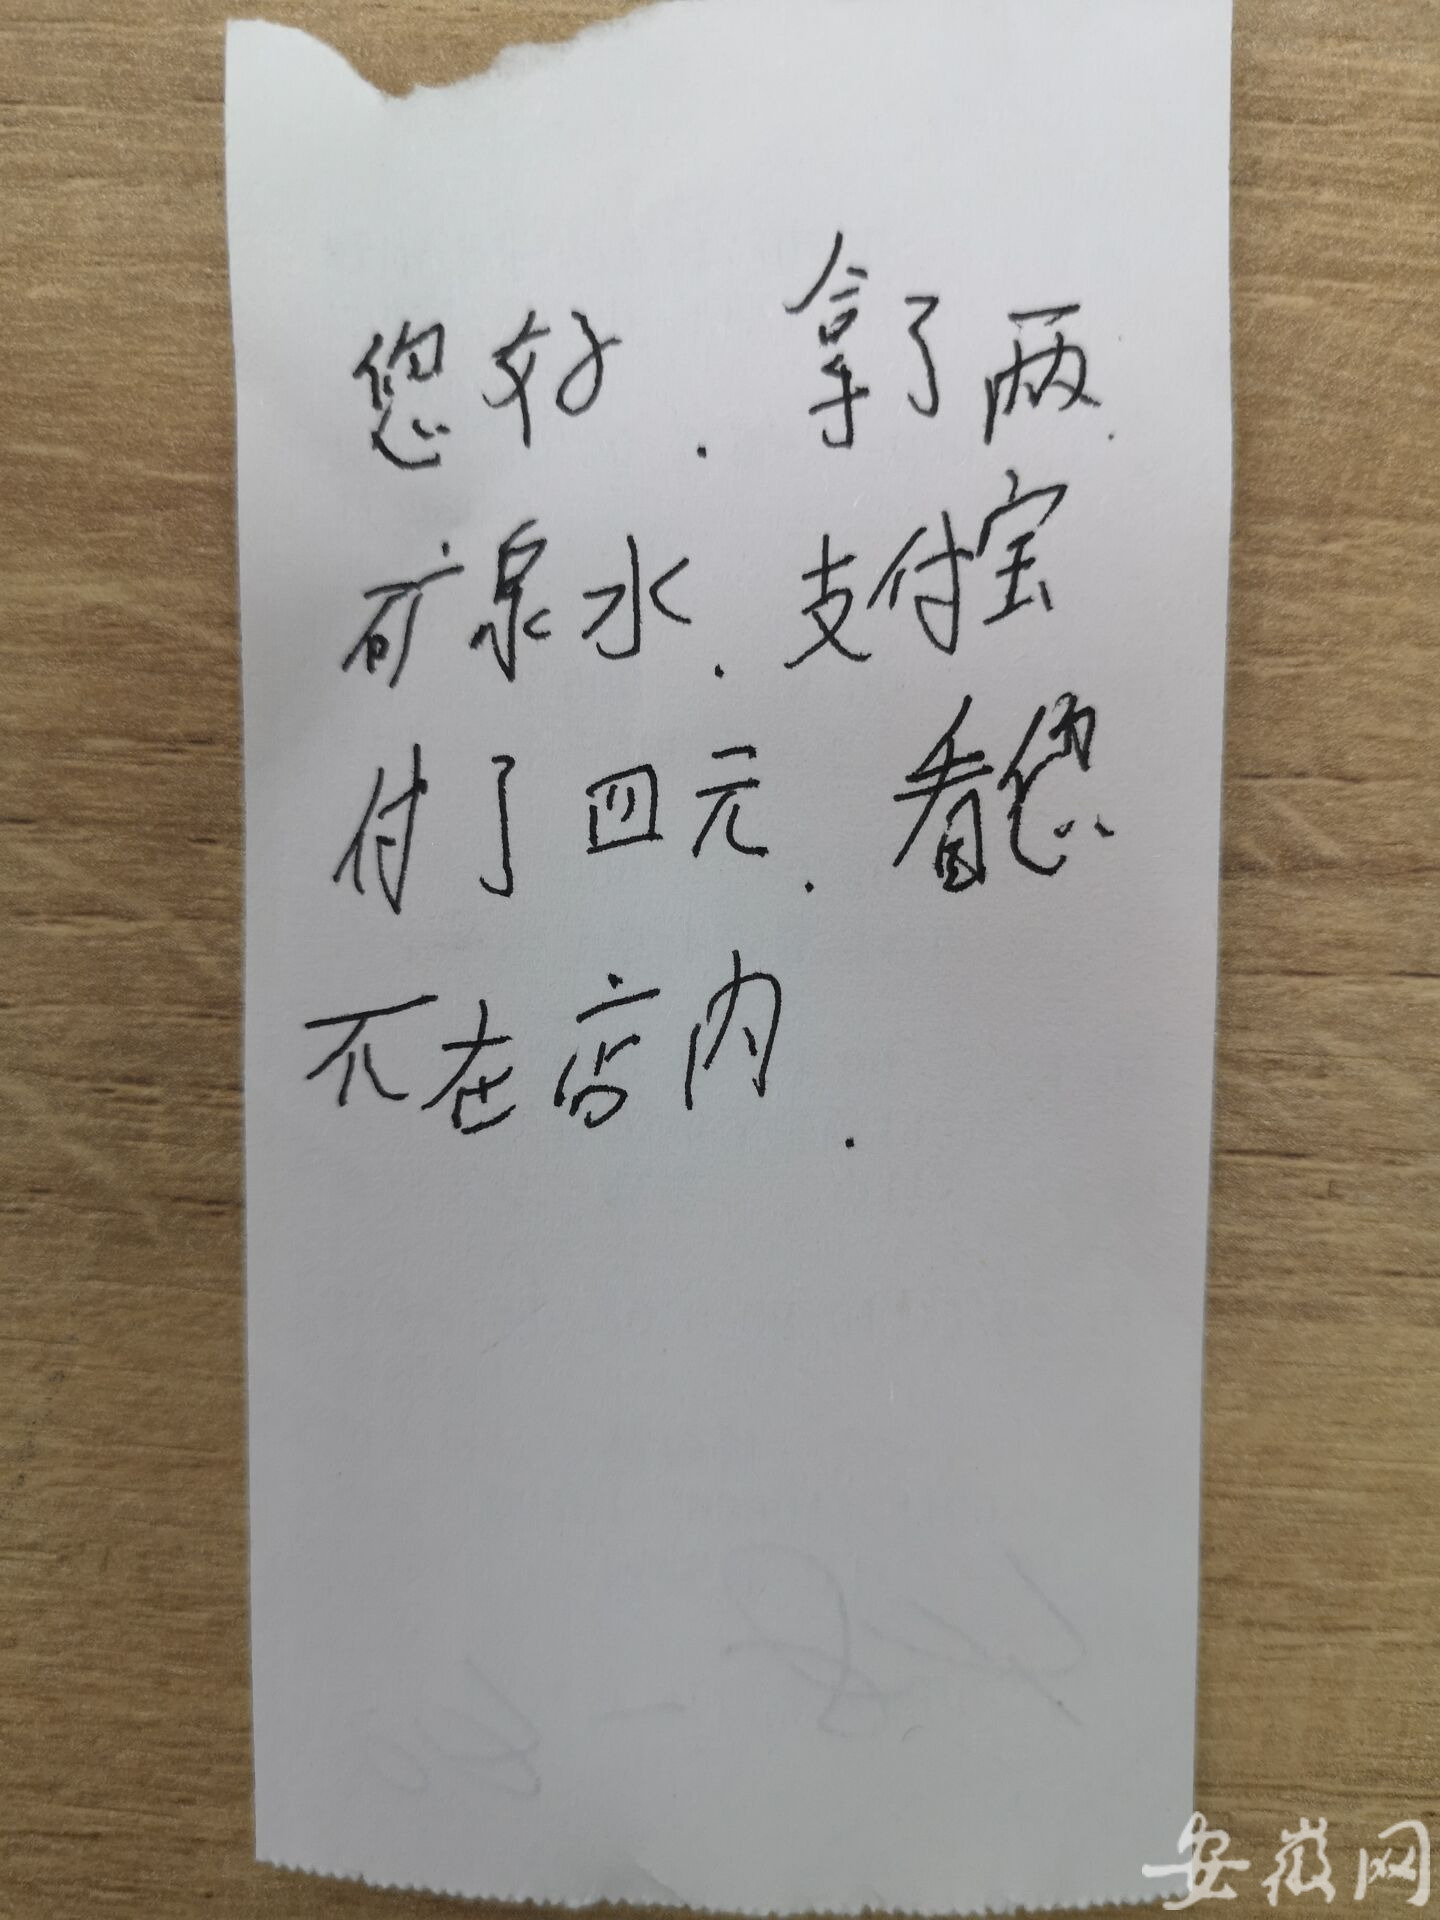 您好.拿了两.
矿泉水.支付宝
付了四元.看您
不在店内.
安徽网